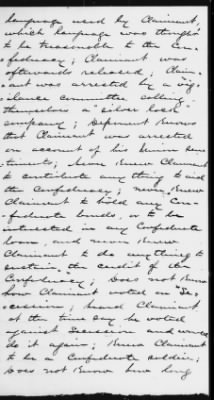 language used by Claimant,
which language was thought
to be treasonable to the Con-
federacy; Claimant was
afterwards released; Claim-
ant was arrested by a vig-
ilance committee calling
themselves a "silver lock"
company; Deponent knows
that Claimant was arrested
on account of his Union sen-
timents; never knew Claimant
to contribute any thing to aid
the Confederacy; never knew
Claimant to hold any Con-
federate bonds, or to be
interested in any Confederate
loan, and never knew
Claimant to do anything to
sustain the credit of the
Confederacy; Does not know
how Claimant voted on "Se-
cession; heard Claimant
at the time say he voted
against Secession and would
do it again; Knew Claimant
to be a Confederate soldier;
Does not know how long